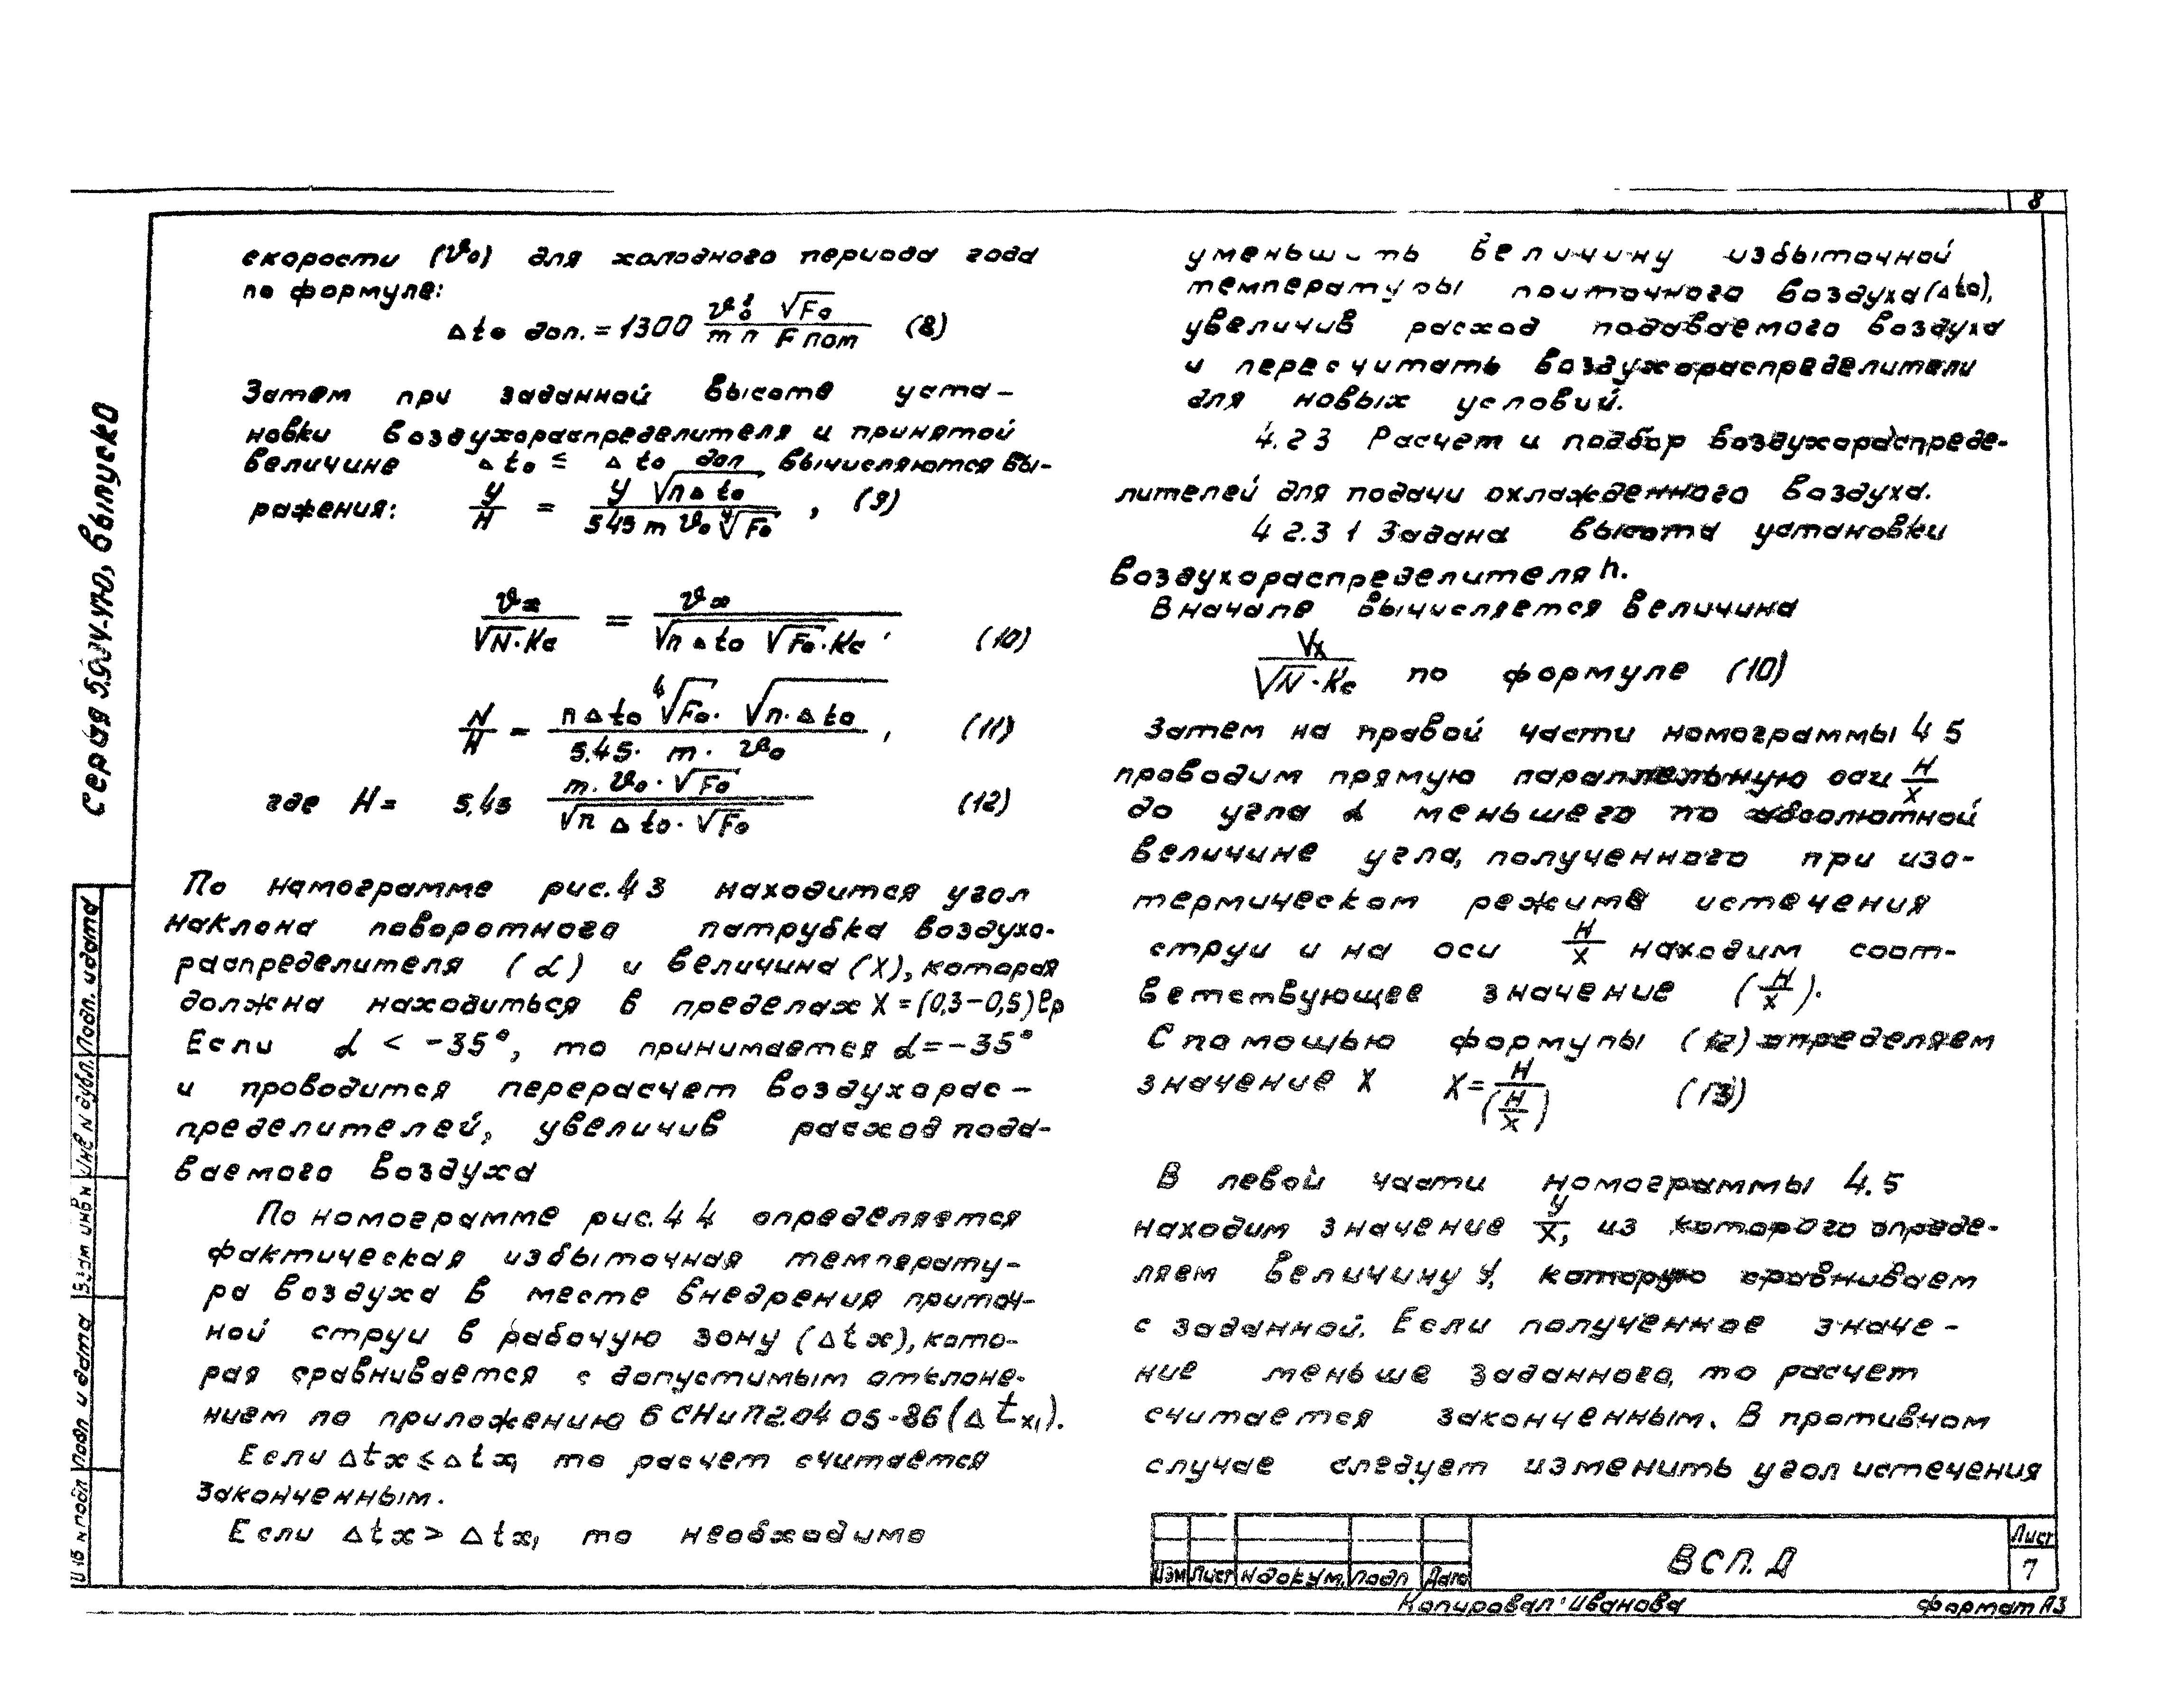 8
скорости (v₀) для холодного периода года
по формуле:
Δt₀ доп. = 1300 (v₀² √F₀) / (m n Fпом) (8)
Затем при заданной высоте уста-
новки воздухораспределителя и принятой
величине Δt₀ ≤ Δt₀ доп вычисляются вы-
ражения: y/H = (y √(nΔt₀)) / (5.45 m v₀ ⁴√F₀), (9)
vx / (√N·Kc) = vx / (√(nΔt₀ √F₀)·Kc), (10)
N/H = (nΔt₀ ⁴√F₀ · √(n·Δt₀)) / (5.45 · m · v₀), (11)
где H = 5.45 (m·v₀·√F₀) / √(nΔt₀·√F₀) (12)
По номограмме рис. 4 3 находится угол
наклона поворотного патрубка воздухо-
распределителя (α) и величина (X), которая
должна находиться в пределах X = (0,3-0,5)ℓр
Если α < -35°, то принимается α = -35°
и проводится перерасчет воздухорас-
пределителей, увеличив расход пода-
ваемого воздуха
По номограмме рис. 4 4 определяется
фактическая избыточная температу-
ра воздуха в месте внедрения приточ-
ной струи в рабочую зону (Δtx), кото-
рая сравнивается с допустимым отклоне-
нием по приложению 6 СНиП 2.04 05-86 (Δtx₁).
Если Δtx ≤ Δtx₁ то расчет считается
законченным.
Если Δtx > Δtx₁ то необходимо
уменьшить величину избыточной
температуры приточного воздуха (Δt₀),
увеличив расход подаваемого воздуха
и пересчитать воздухораспределители
для новых условий.
4.2 3 Расчет и подбор воздухораспреде-
лителей для подачи охлажденного воздуха.
4 2.3 1 Задана высота установки
воздухораспределителя h.
Вначале вычисляется величина
Vx / (√N·Kc) по формуле (10)
Затем на правой части номограммы 4 5
проводим прямую параллельную оси H/X
до угла α меньшего по абсолютной
величине угла, полученного при изо-
термическом режиме истечения
струи и на оси H/X находим соот-
ветствующее значение (H/X).
С помощью формулы (12) определяем
значение X X = H / (H/X) (13)
В левой части номограммы 4.5
находим значение y/X, из которого опреде-
ляем величину y, которую сравниваем
с заданной. Если полученное значе-
ние меньше заданного, то расчет
считается законченным. В противном
случае следует изменить угол истечения
Серия 5.904-
, выпуск 0
Подп. и дата
Инв N дубл.
Взам инв N
Подп и дата
Инв N подл
Изм Лист N докум. Подп Дата
ВСП. Д
Лист
7
Копировал: Иванова
формат А3